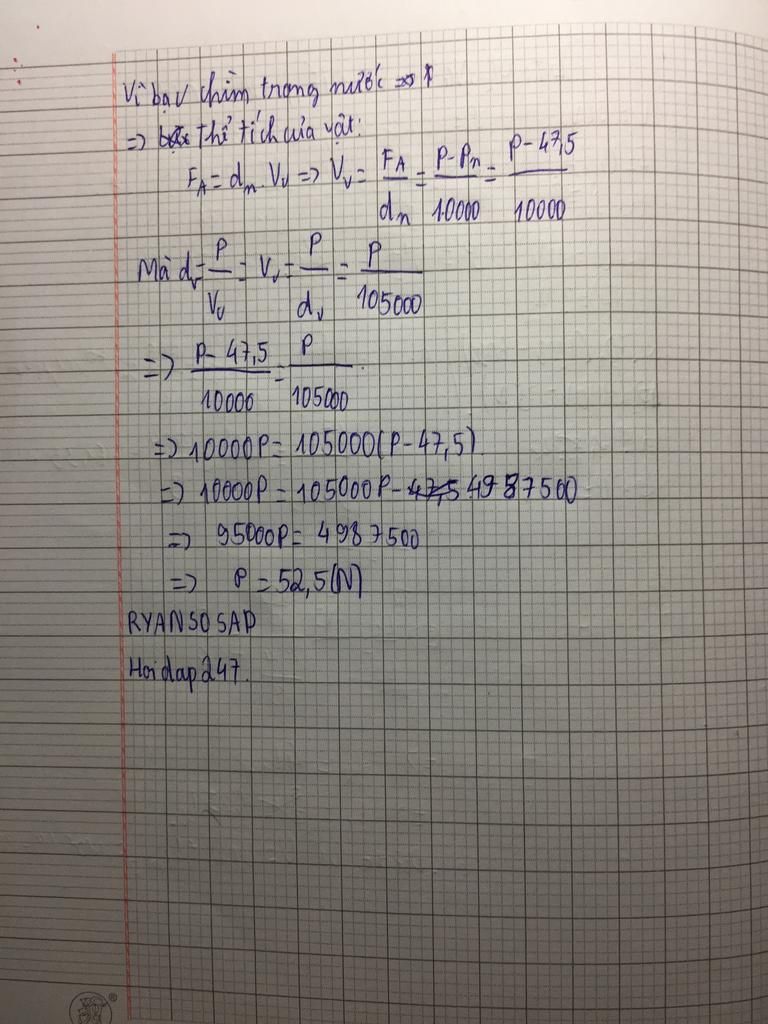 Vì bạc chìm trong nước => 
=> thể tích của vật:
F_A = d_n . V_v => V_v = F_A / d_n = P - P_n / 10000 = P - 47,5 / 10000
Mà d_v = P / V_v = V_v = P / d_v = P / 105000
=> P - 47,5 / 10000 = P / 105000
=> 10000P = 105000(P - 47,5)
=> 10000P = 105000P - 4987500
=> 95000P = 4987500
=> P = 52,5(N)
RYANSOSAD
Hoidap247.